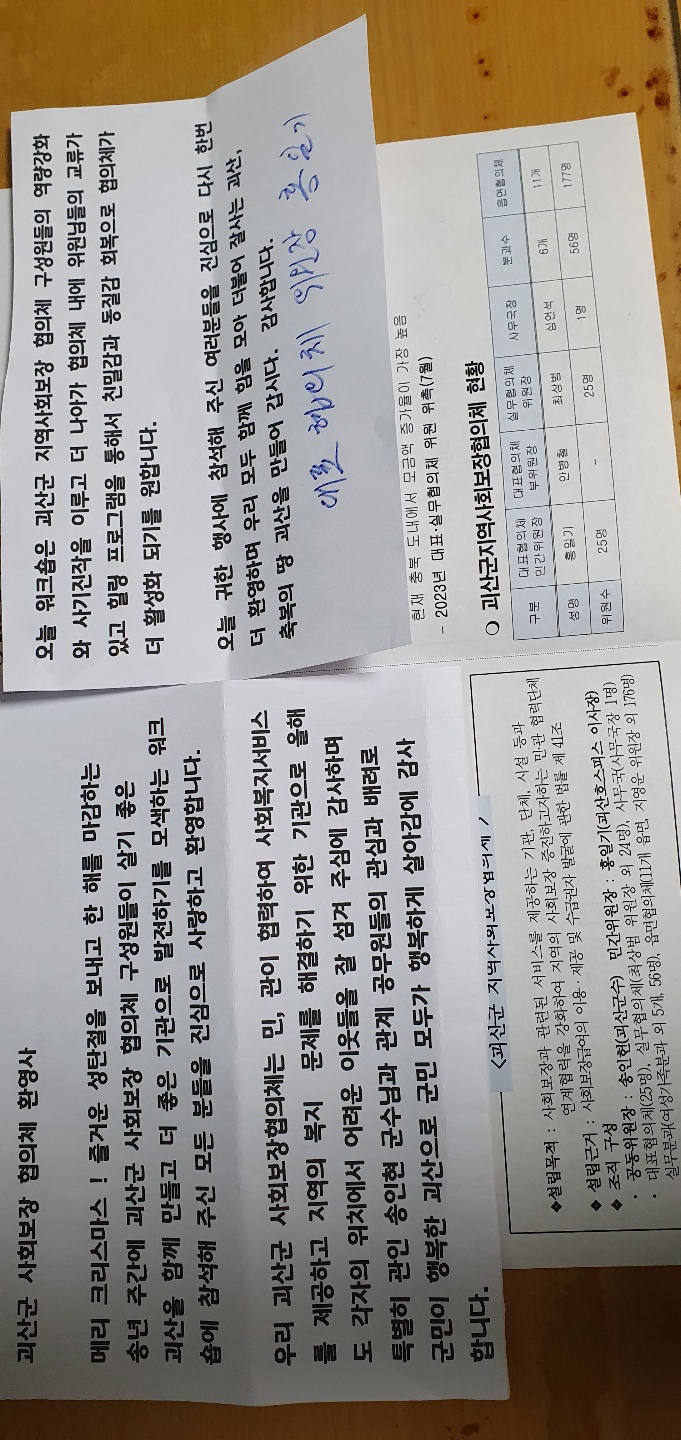 괴산군 사회보장 협의체 환영사
메리 크리스마스 ! 즐거운 성탄절을 보내고 한 해를 마감하는
송년 주간에 괴산군 사회보장 협의체 구성원들이 살기 좋은
괴산을 함께 만들고 더 좋은 기관으로 발전하기를 모색하는 워크
숍에 참석해 주신 모든 분들을 진심으로 사랑하고 환영합니다.
우리 괴산군 사회보장협의체는 민, 관이 협력하여 사회복지서비스
를 제공하고 지역의 복지 문제를 해결하기 위한 기관으로 올해
도 각자의 위치에서 어려운 이웃들을 잘 섬겨 주심에 감사하며
특별히 관인 송인헌 군수님과 관계 공무원들의 관심과 배려로
군민이 행복한 괴산으로 군민 모두가 행복하게 살아감에 감사
합니다.
오늘 워크숍은 괴산군 지역사회보장 협의체 구성원들의 역량강화
와 사기진작을 이루고 더 나아가 협의체 내에 위원님들의 교류가
있고 힐링 프로그램을 통해서 친밀감과 동질감 회복으로 협의체가
더 활성화 되기를 원합니다.
오늘 귀한 행사에 참석해 주신 여러분들을 진심으로 다시 한번
더 환영하며 우리 모두 함께 힘을 모아 더불어 잘사는 괴산,
축복의 땅 괴산을 만들어 갑시다. 감사합니다.
대표 협의체 위원장 홍일기
<괴산군 지역사회보장협의체>
❖설립목적 : 사회보장과 관련된 서비스를 제공하는 기관, 단체, 시설 등과
연계협력을 강화하여 지역의 사회보장 증진하고자하는 민관 협력단체
❖ 설립근거 : 사회보장급여의 이용·제공 및 수급권자 발굴에 관한 법률 제 41조
❖ 조직 구성
· 공동위원장 : 송인헌(괴산군수) 민간위원장 : 홍일기(괴산호스피스 이사장)
· 대표협의체(25명), 실무협의체(최상범 위원장 외 24명), 사무국(사무국장 1명)
실무분과(여성가족분과 외 5개, 56명), 읍면협의체(11개 읍면, 지영운 위원장 외 176명)
현재 충북 도내에서 모금액 증가율이 가장 높음
- 2023년 대표·실무협의체 위원 위촉(7월)
❍ 괴산군지역사회보장협의체 현황
구분 대표협의체 민간위원장 대표협의체 부위원장 실무협의체 위원장 사무국장 분과수 읍면협의체
성명 홍일기 안병철 최상범 심언석 6개 11개
위원수 25명 - 25명 1명 56명 177명